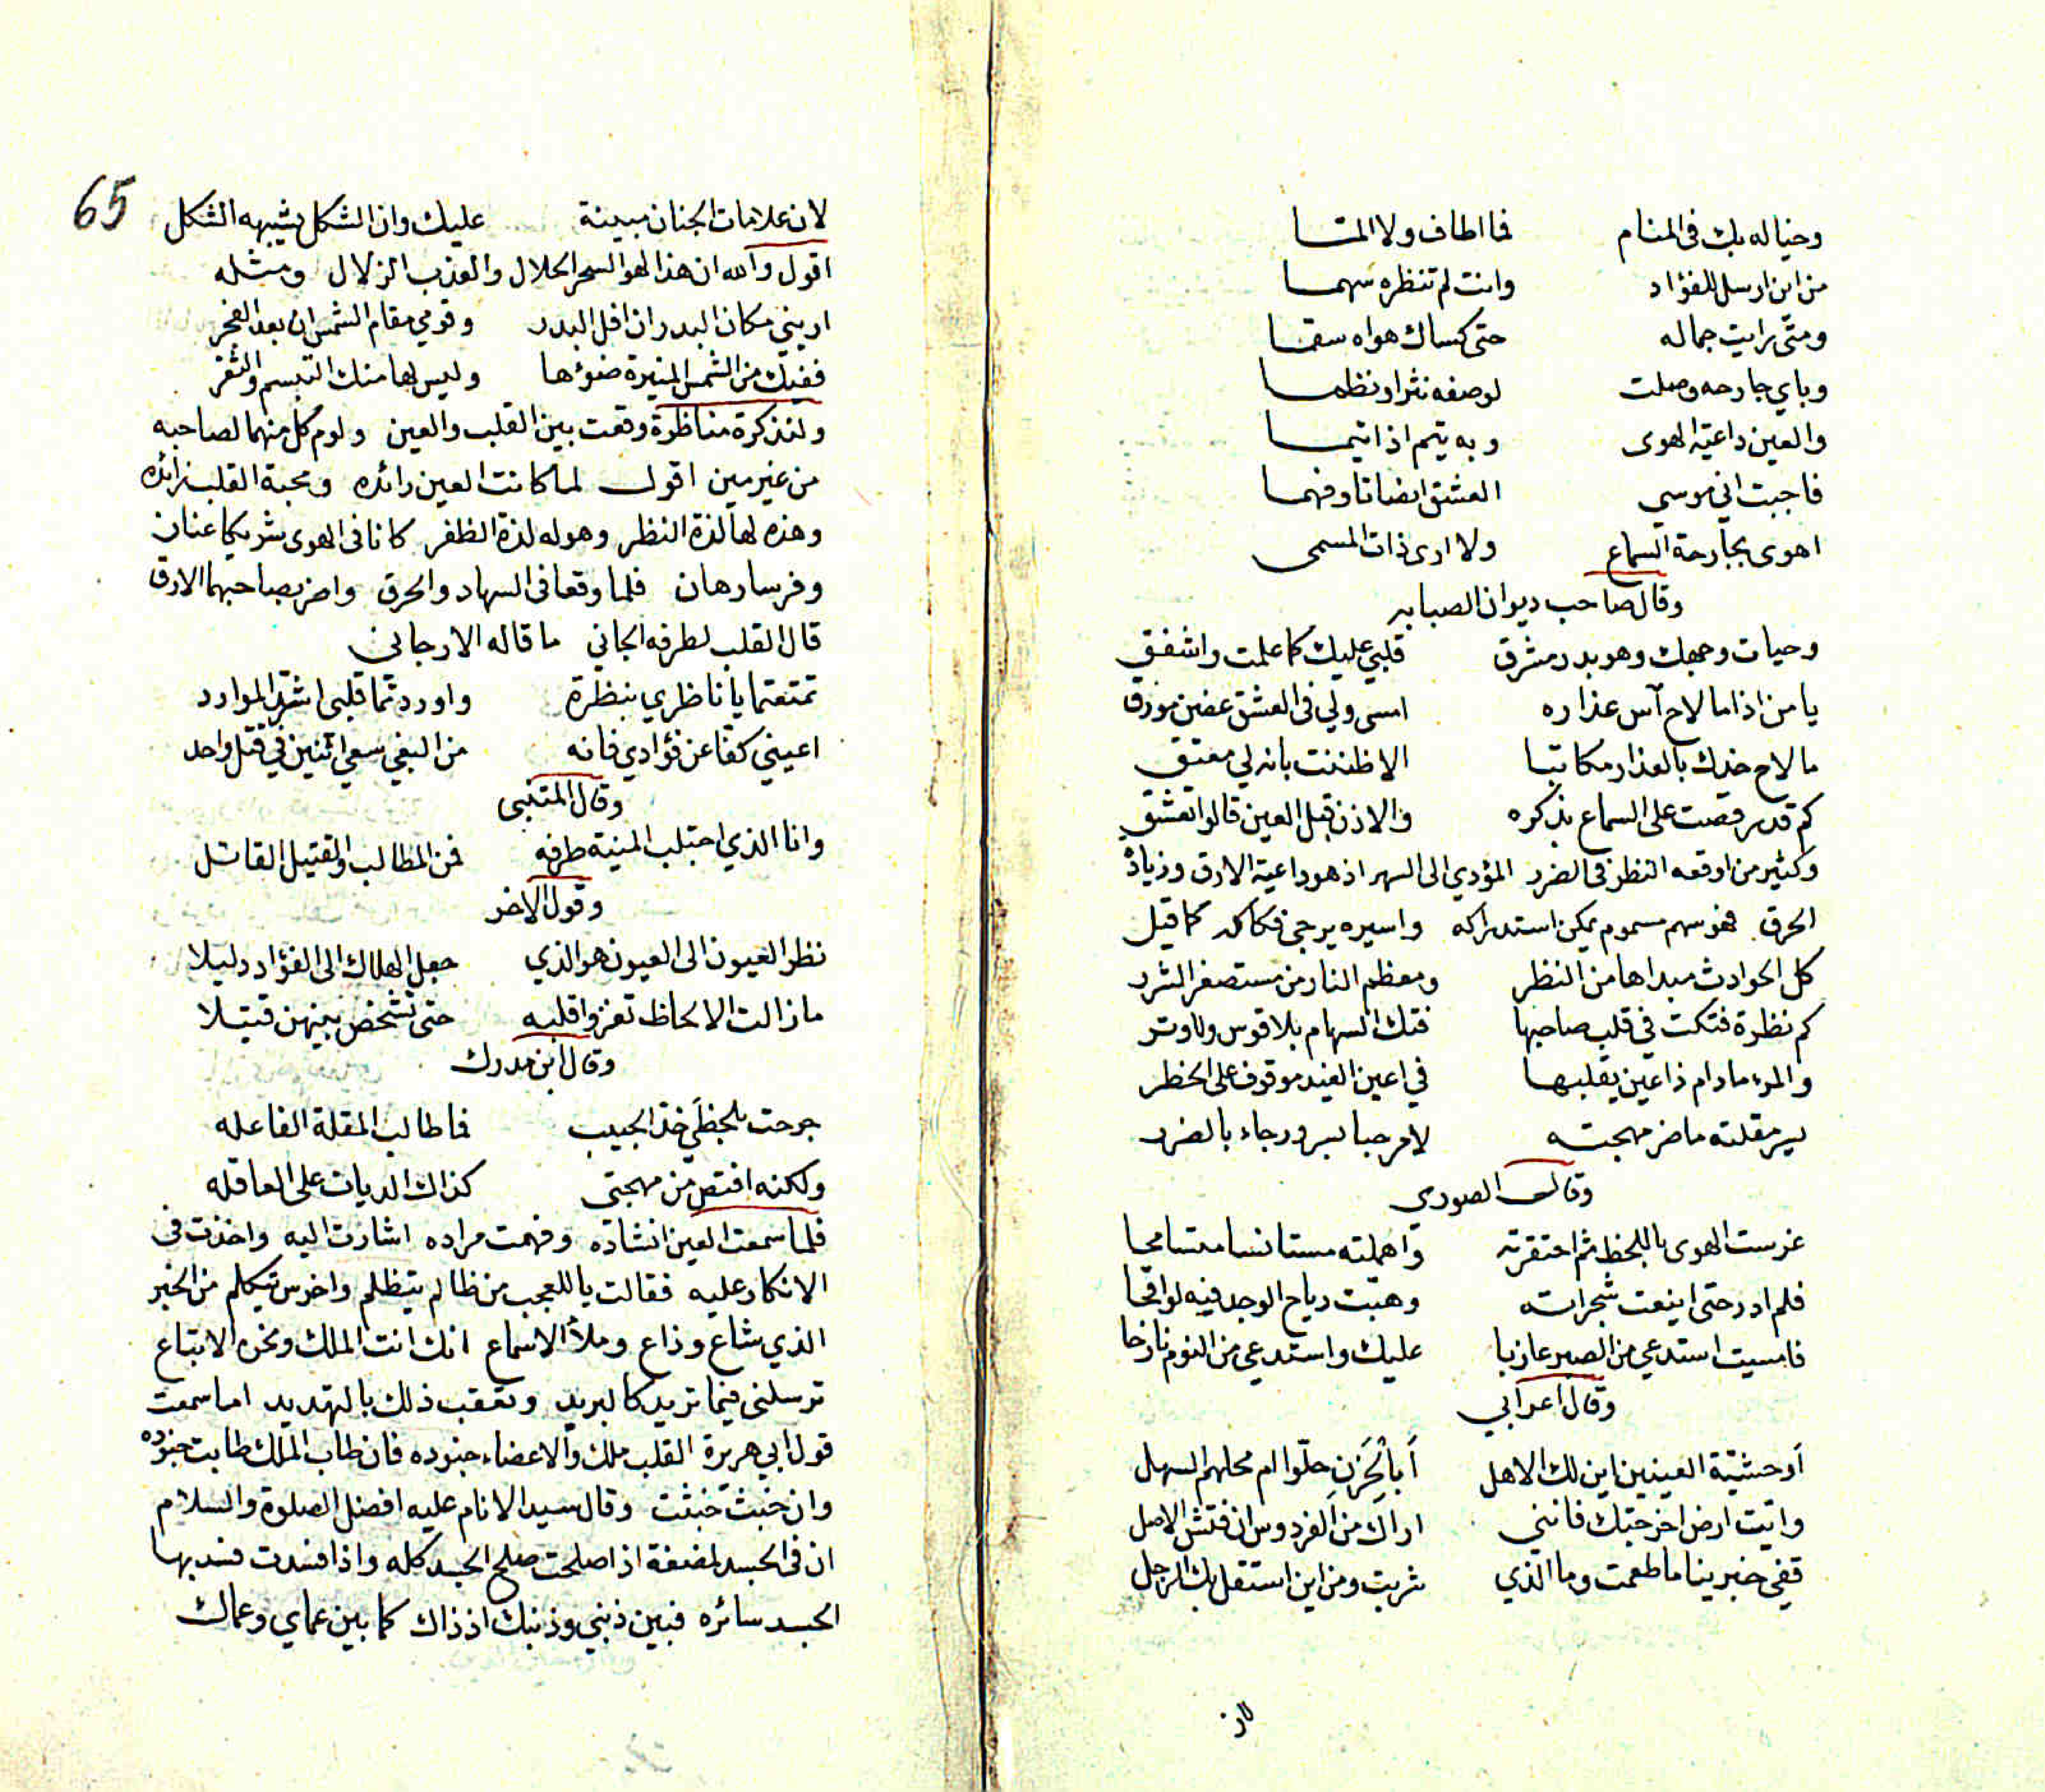 وخياله بك في المنام فما اطاف ولا المتا
من اين ارسل للفؤاد وانت لم تنظره سهما
ومتى رايت جماله حتى كساك هواه سقما
وباي جارحه وصلت لوصفه نثرا ونظما
والعين داعية الهوى وبه يتم اذا تيما
فاجبت اني موسي العشق انصاتا وفهما
اهوى بجارحة السماع ولا ارى ذات المسمى
وقال صاحب ديوان الصبابه
وحيات وجهك وهو بدر مشرق قلبي عليك كما علمت واشفق
يا من اذا ما لاح آس عذاره امسى ولي في العشق غصن مورق
ما لاح خدك بالعذار مكاتبا الا ظننت بانه لي معتق
كم قد رقصت على السماع بذكره والاذن قبل العين قالوا تعشق
وكثير من اوقعه النظر في الضرر المؤدي الى السهر اذ هو داعية الارق وزيادة
الحرق فهو سهم مسموم يمكن استدراكه واسيره يرجى فكاكه كما قيل
كل الحوادث مبداها من النظر ومعظم النار من مستصغر الشرر
كم نظرة فتكت في قلب صاحبها فتك السهام بلا قوس ولا وتر
والمرء ما دام ذا عين يقلبها في اعين الغيد موقوف على الخطر
يسر مقلته ما ضر مهجته لا مرحبا بسرور جاء بالضرر
وقال الصوري
غرست الهوى باللحظ ثم احتقرته واهملته مستانسا متسامحا
فلم ادر حتى اينعت شجراته وهبت رياح الوجد فيه لواقحا
فامسيت استدعي من الصبر عازبا عليك واستدعي من النوم نازحا
وقال اعرابي
أوحشيّة العينين اين لك الاهل أبالحَزنِ حلّوا ام محلهم السهل
واتيت ارض اخرجتك فانني اراك من الفردوس ان فتش الاصل
قفي خبرينا ما طعمت وما الذي شربت ومن اين استقل بك الرحل
لان
65
لان علامات الجنان مبينة عليك وان الشكل يشبهه الشكل
اقول والله ان هذا لهو السحر الحلال والعذب الزلال ومثله
اريني مكان البدر ان افل البدر وقومي مقام الشمس ان بعد الفجر
ففيك من الشمس المنيرة ضوءها وليس لها منك التبسم والثغر
ولنذكرة مناظرة وقعت بين القلب والعين ولوم كل منهما لصاحبه
من غير مين اقول لما كانت العين رائده ومحبة القلب زائده
وهذه لها لذة النظر وهو له لذة الظفر كانا في الهوى شريكا عنان
وفرسا رهان فلما وقعا في السهاد والحرق واضر بصاحبهما الارق
قال القلب لطرفه الجاني ما قاله الارجاني
تمتعتما يا ناظري بنظرة واوردتما قلبي اشر الموارد
اعيني كفا عن فؤادي فانه من البغي سعي اثنين في قتل واحد
وقال المتنبي
وانا الذي اجتلب المنية طرفه فمن المطالب والقتيل القاتل
وقول الاخر
نظر العيون الى العيون هو الذي جعل الهلاك الى الفؤاد دليلا
ما زالت الالحاظ تغزوا قلبه حتى تشخص بينهن قتيلا
وقال ابن مدرك
جرحت بلحظي خذ الحبيب فما طالب المقلة الفاعله
ولكنه اقتص من مهجتي كذاك الديات على العاقله
فلما سمعت العين انشاده وفهمت مراده اشارت اليه واخذت في
الانكار عليه فقالت يا للعجب من ظالم يتظلم واخرس تيكلم من الخبر
الذي شاع وذاع وملأ الاسماع انك انت الملك ونحن الاتباع
ترسلني فيما تريد كالبريد وتعقب ذلك بالتهديد اما سمعت
قول ابي هريرة القلب ملك والاعضاء جنوده فان طاب الملك طابت جنوده
وان خبث خبثت وقال سيد الانام عليه افضل الصلوة والسلام
ان في الجسد لمضغة اذا صلحت صلح الجسد كله واذا فسدت فسد بها
الجسد سائره فبين ذنبي وذنبك اذ ذاك كما بين عماي وعماك